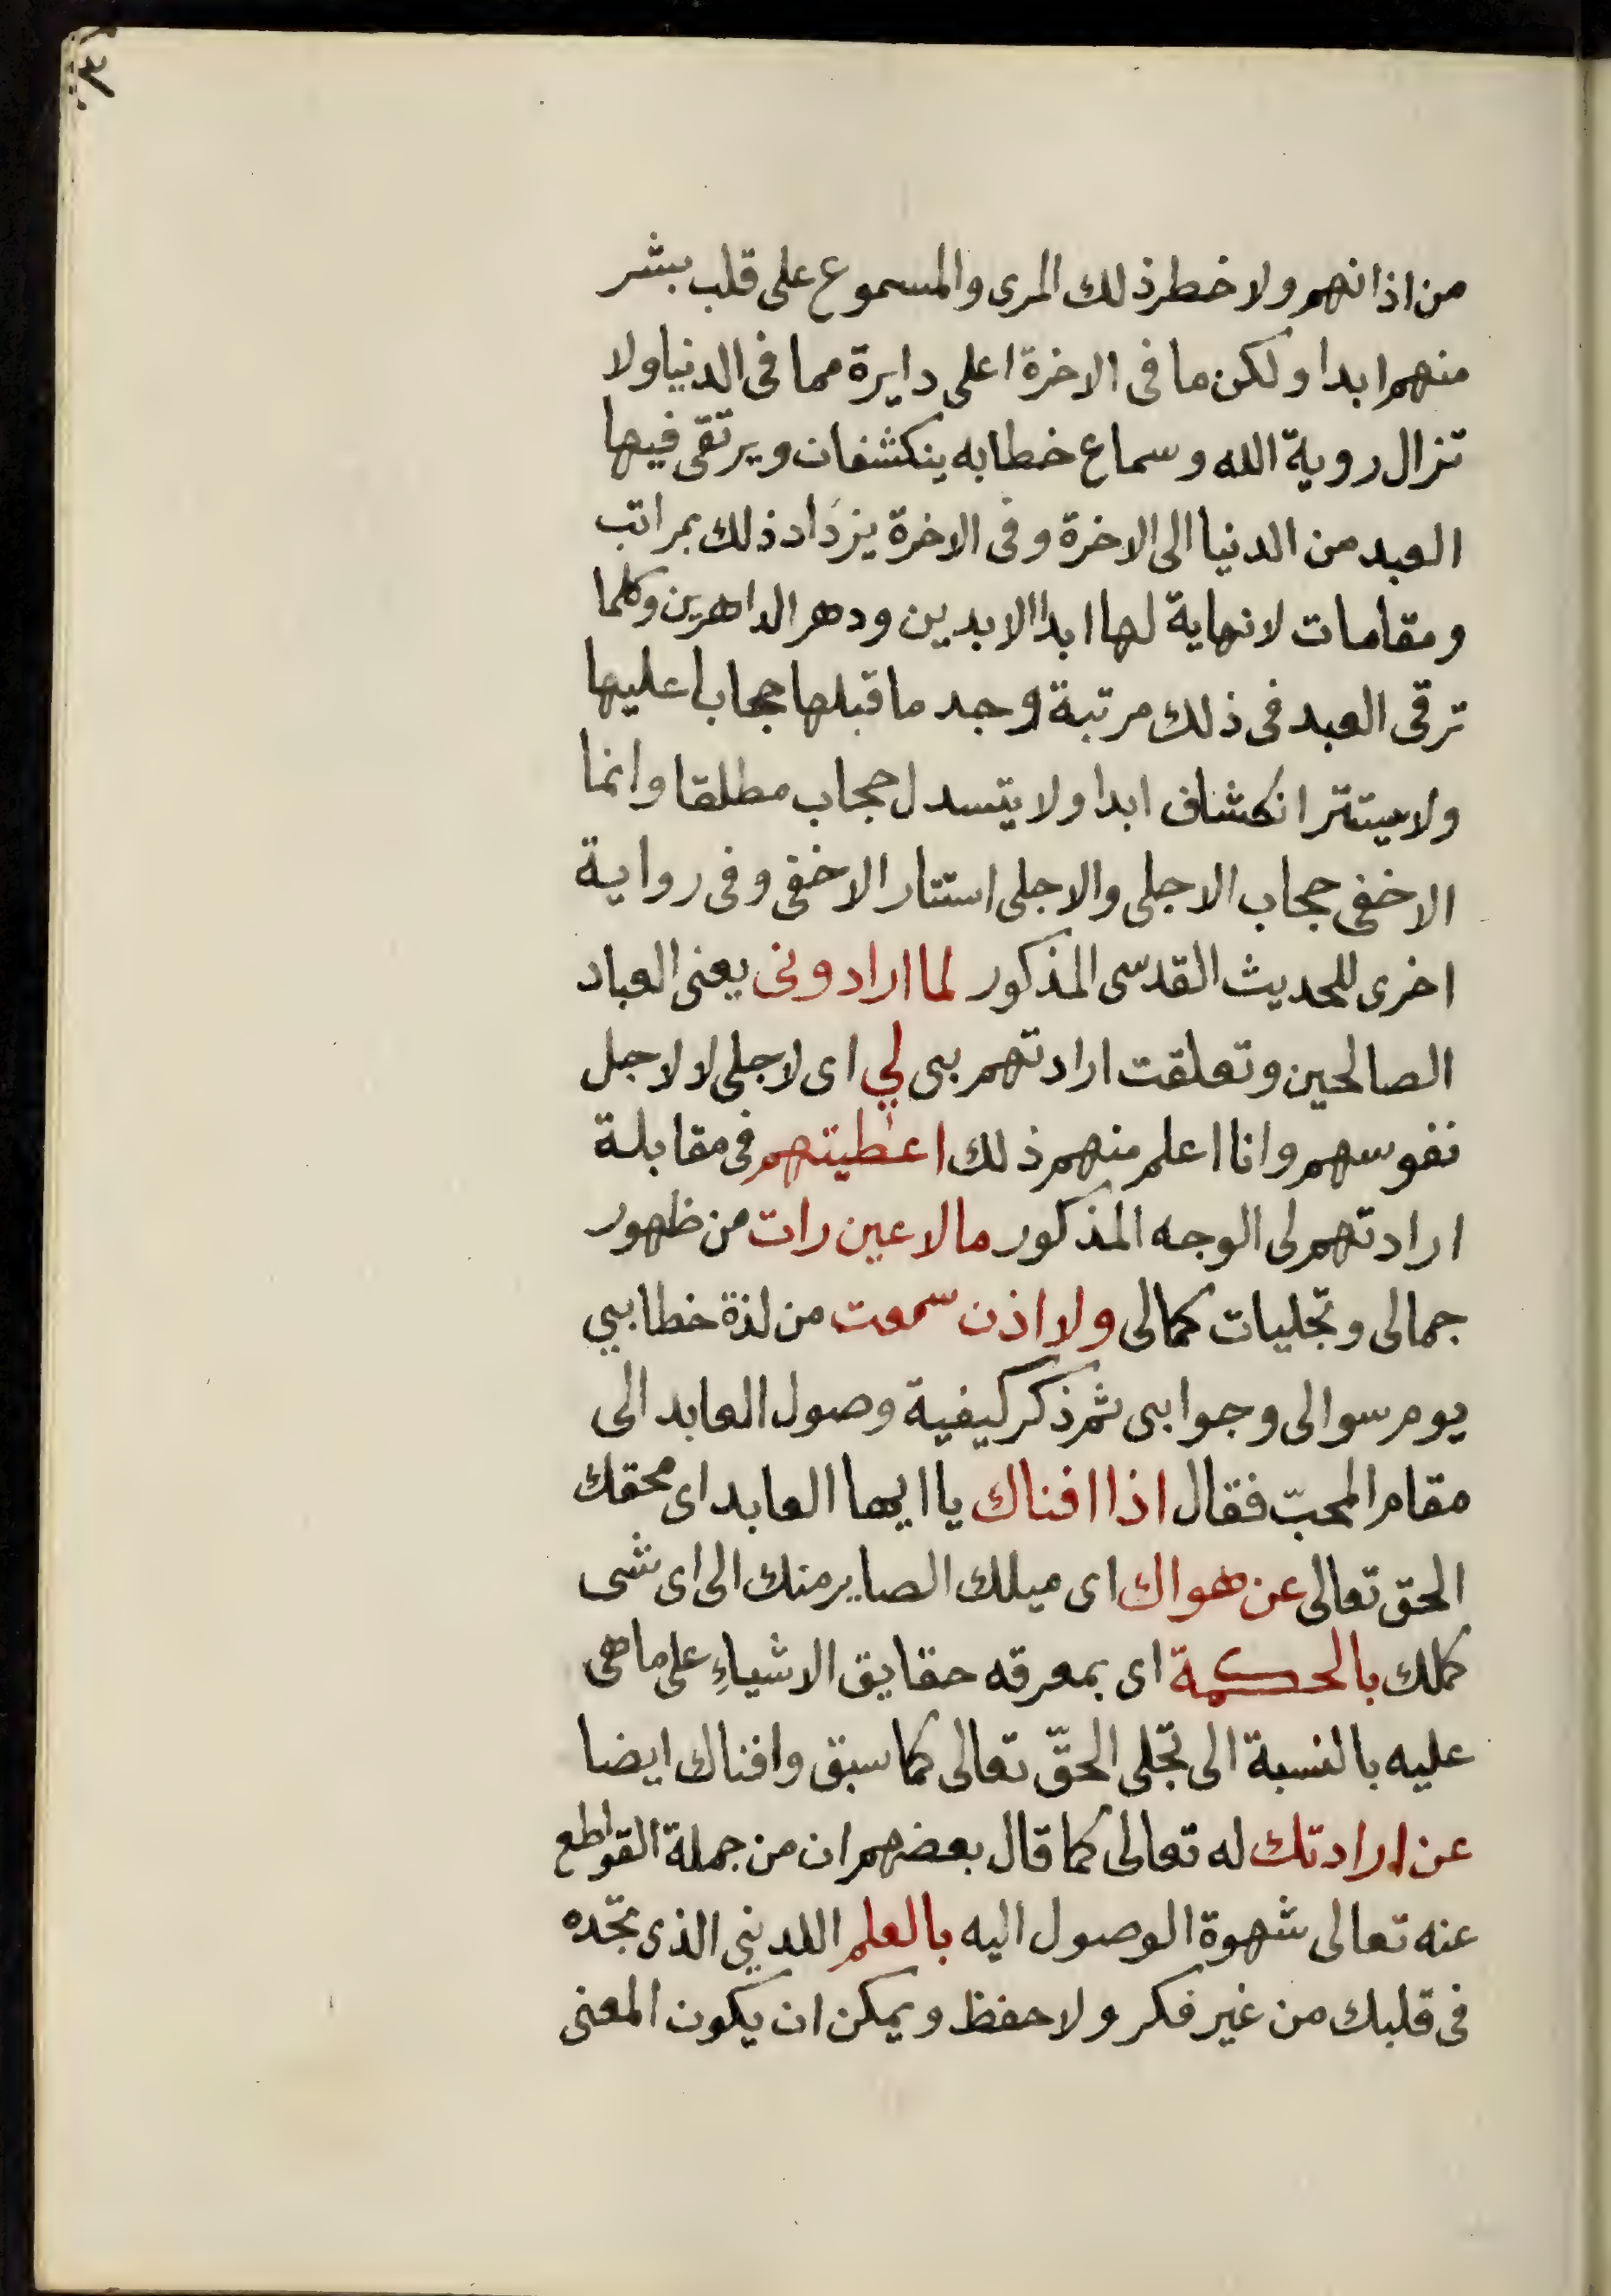 من اذانهم ولا خطر ذلك المرى والمسموع على قلب بشر
منهم ابدا ولكن ما فى الاخرة اعلى دايرة مما فى الدنيا ولا
تزال روية الله وسماع خطابه ينكشفان ويرتقى فيها
العبد من الدنيا الى الاخرة وفى الاخرة يزداد ذلك بمراتب
ومقامات لانهاية لها ابدا الابدين ودهر الداهرين وكلما
ترقى العبد فى ذلك مرتبة وجد ما قبلها حجابا عليها
ولا يستتر انكشاف ابدا ولا يتسدل حجاب مطلقا وانما
الاخفى حجاب الاجلى والاجلى استتار الاخفى وفى رواية
اخرى للحديث القدسى المذكور لما ارادونى يعنى العباد
الصالحين وتعلقت ارادتهم بى لي اى لاجلى لا لاجل
نفوسهم وانا اعلم منهم ذلك اعطيتهم فى مقابلة
ارادتهم لى الوجه المذكور ما لا عين رات من ظهور
جمالى وتجليات كمالى ولا اذن سمعت من لذة خطابي
يوم سوالى وجوابى ثم ذكر كيفية وصول العابد الى
مقام المحبّ فقال اذا افناك يا ايها العابد اى محقك
الحق تعالى عن هواك اى ميلك الصاير منك الى اى شى
كملك بالحكمة اى بمعرفه حقايق الاشياءِ على ما هى
عليه بالنسبة الى تجّلى الحقّ تعالى كما سبق وافناك ايضا
عن ارادتك له تعالى كما قال بعضهم ان من جملة القواطع
عنه تعالى شهوة الوصول اليه بالعلم اللدني الذى تجّده
فى قلبك من غير فكر ولا حفظ ويمكن ان يكون المعنى